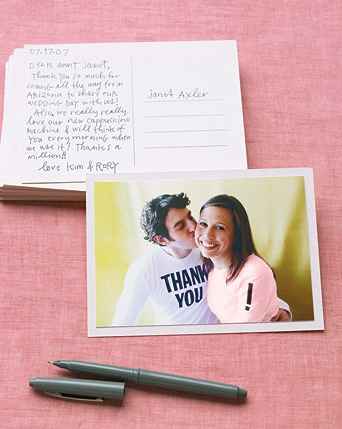 07.17.07
DEAR AUNT JANET,
Thank you so much for
coming all the way from
ARIZONA to share our
WEDDING DAY with us!
Also, we really really
love our new cappuccino
machine & will think of
you every morning when
we use it! Thanks a
million!!
love Kim & RORY
Janet Axler
THANK
YOU
!